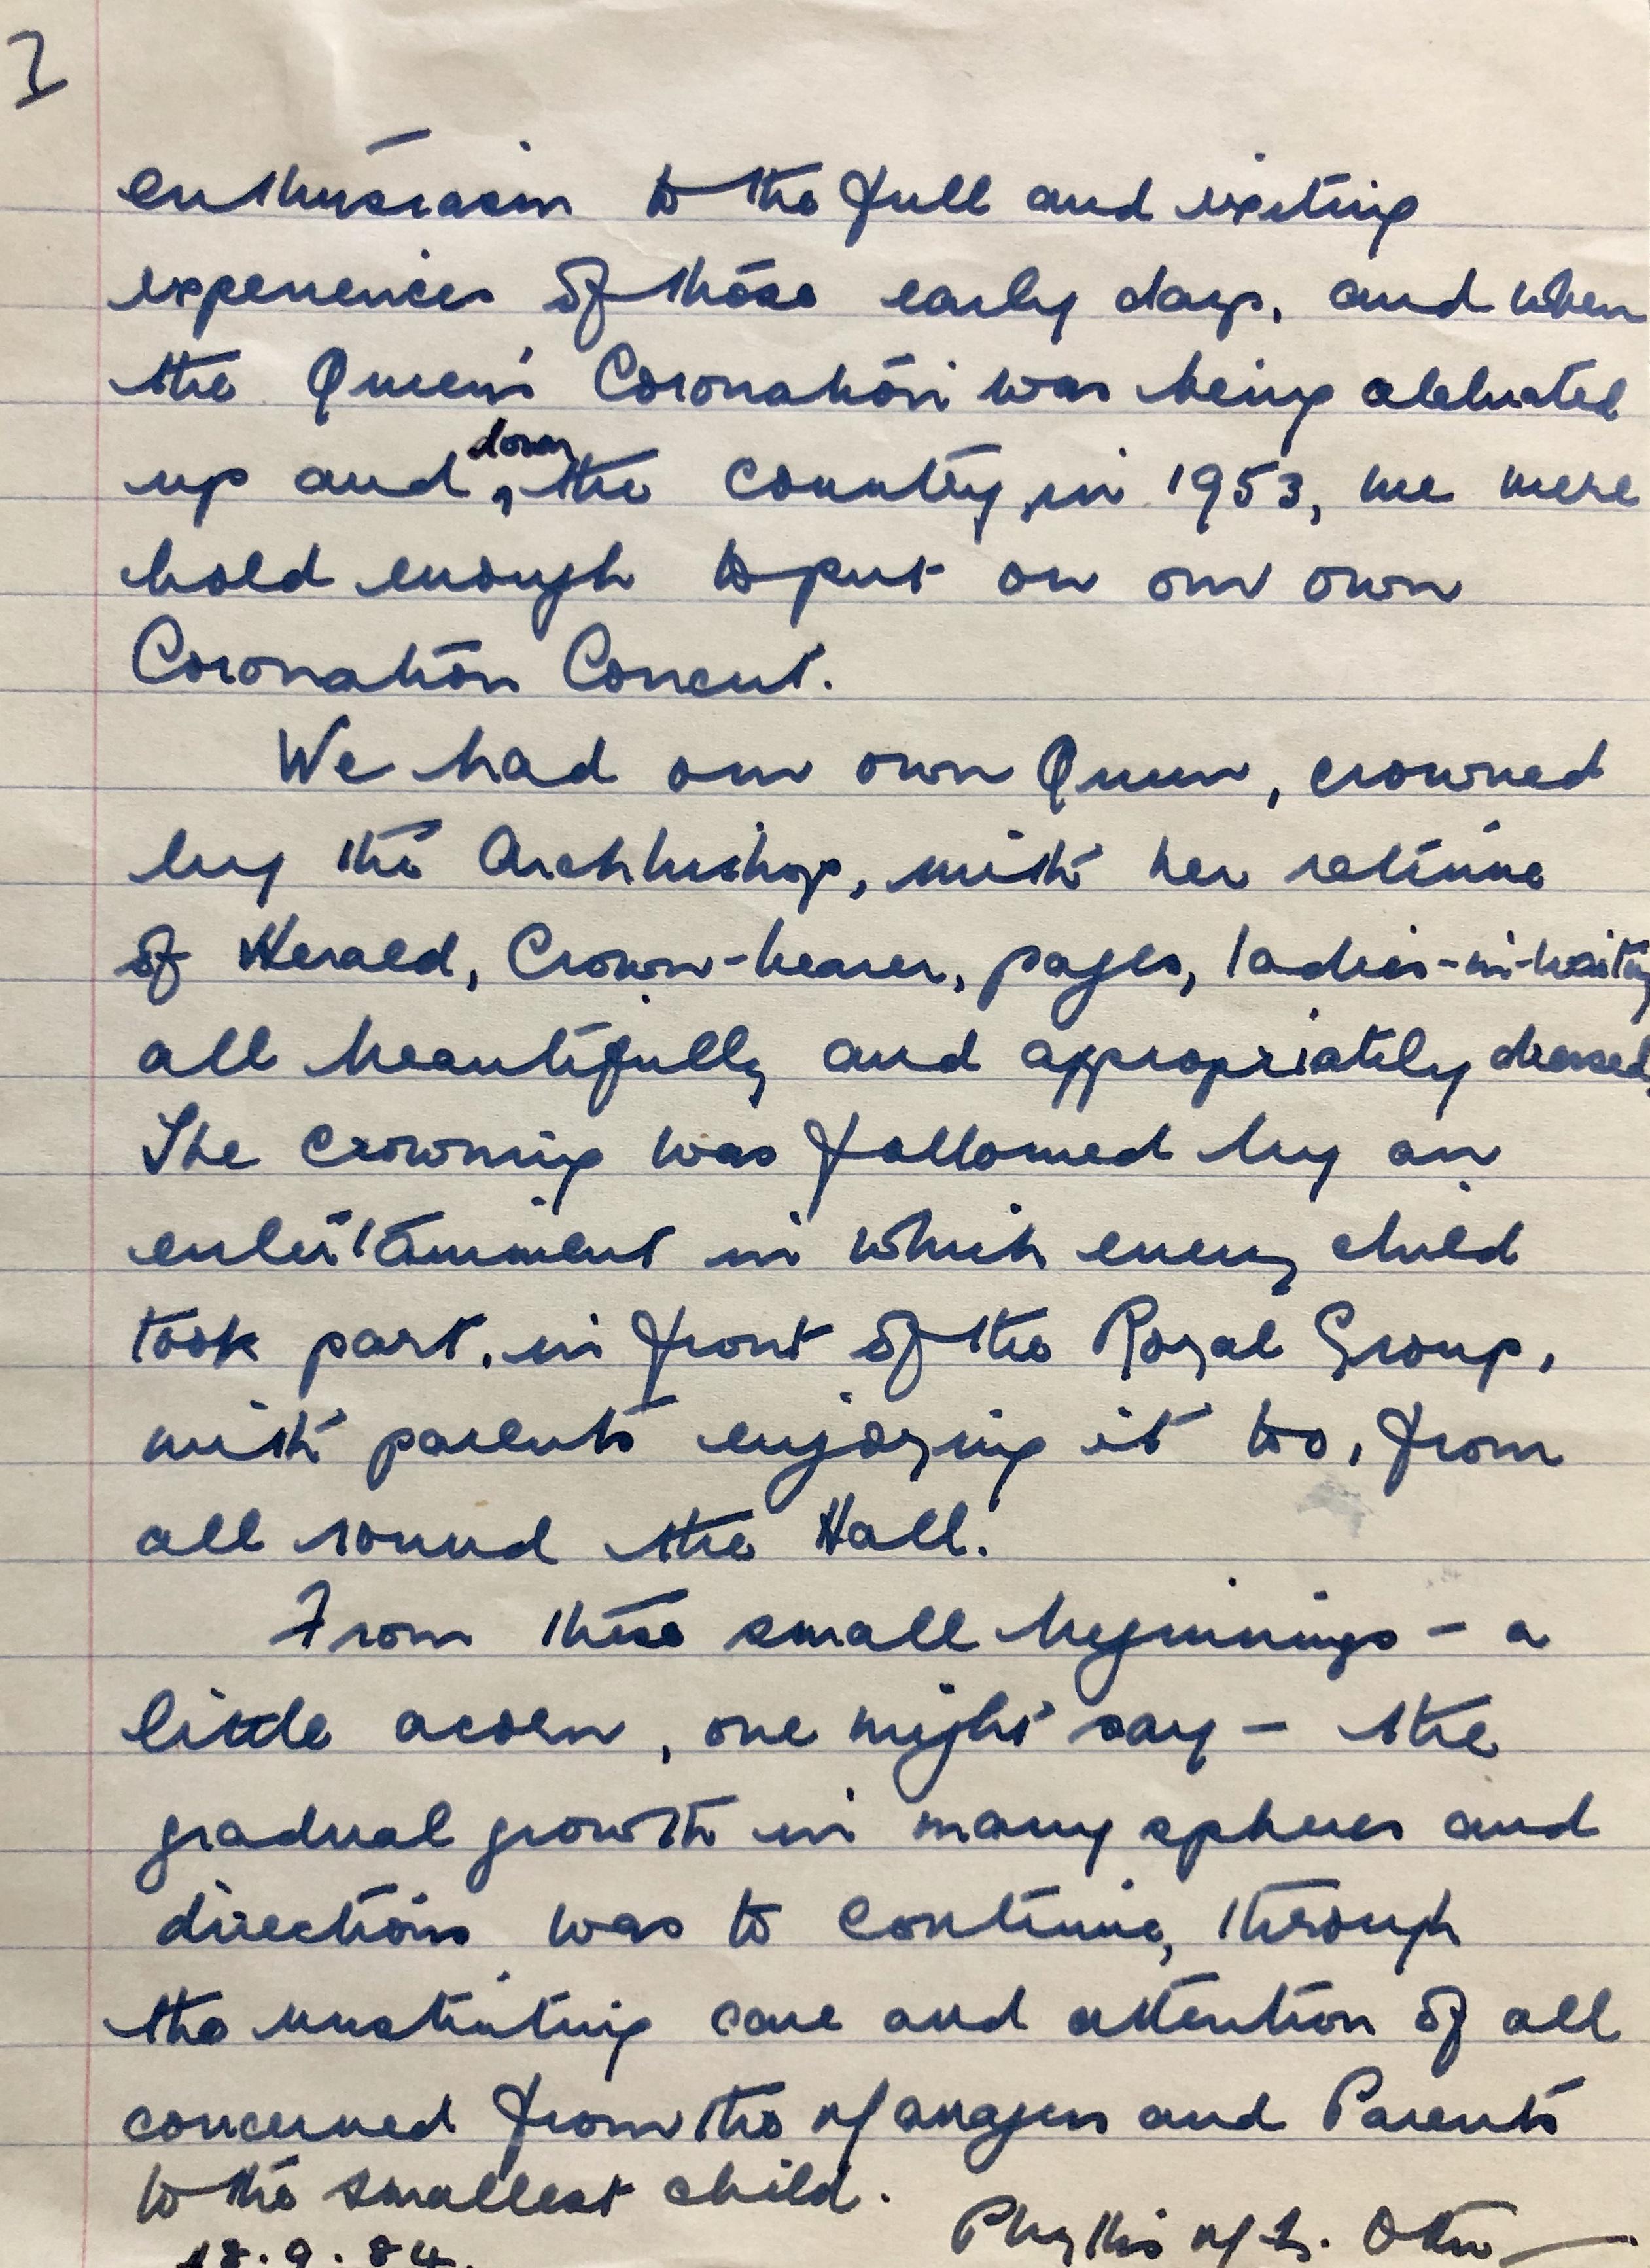 2
enthusiasm to the full and exciting
experiences of those early days, and when
the Queen's Coronation was being celebrated
up and down the country, in 1953, we were
bold enough to put on our own
Coronation Concert.
We had our own Queen, crowned
by the Archbishop, with her retinue
of Herald, Crown-bearer, pages, ladies-in-waiting
all beautifully and appropriately dressed.
The crowning was followed by an
entertainment in which every child
took part, in front of the Royal Group,
with parents enjoying it too, from
all round the Hall.
From these small beginnings - a
little acorn, one might say - the
gradual growth in many spheres and
directions was to continue, through
the unstinting care and attention of all
concerned from the Managers and Parents
to the smallest child.
18.9.84. Phyllis M.